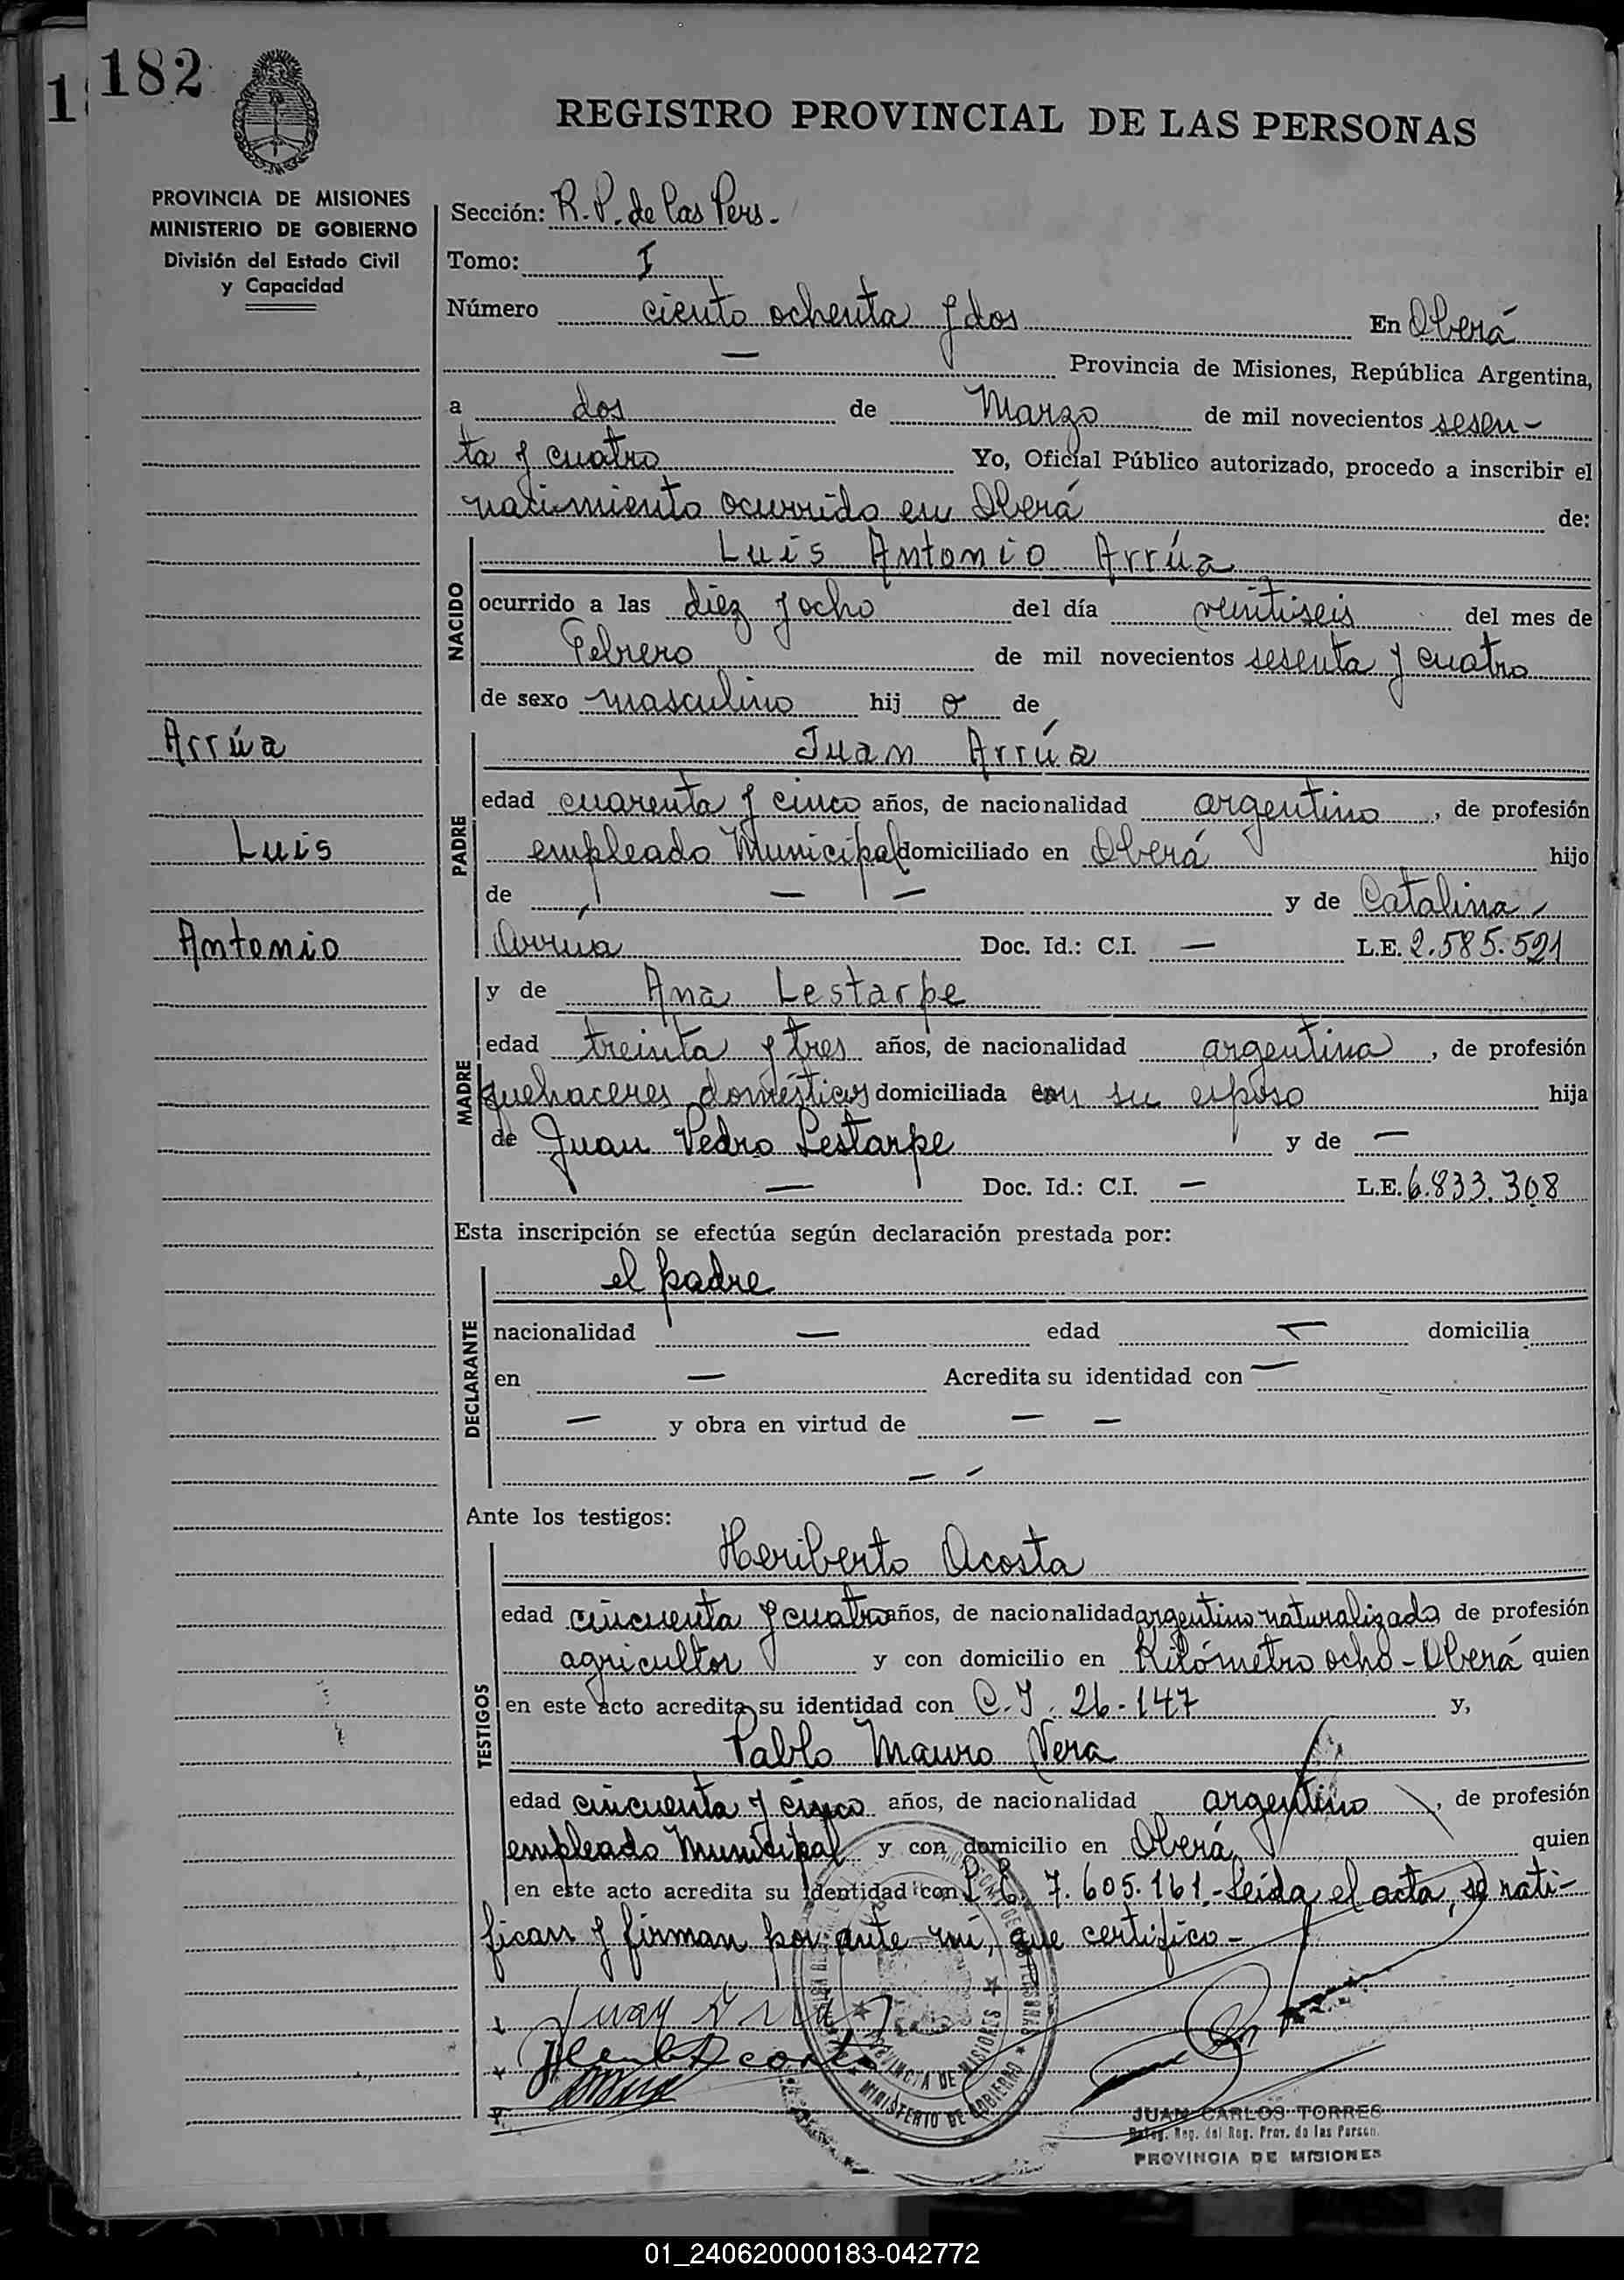 182
1
REGISTRO PROVINCIAL DE LAS PERSONAS
PROVINCIA DE MISIONES
MINISTERIO DE GOBIERNO
División del Estado Civil
y Capacidad
Sección: R. P. de las Pers.
Tomo: I
Número ciento ochenta y dos En Oberá
— Provincia de Misiones, República Argentina,
a dos de Marzo de mil novecientos sesen-
ta y cuatro Yo, Oficial Público autorizado, procedo a inscribir el
nacimiento ocurrido en Oberá de:
NACIDO
Luis Antonio Arrúa
ocurrido a las diez y ocho del día veintiseis del mes de
Febrero de mil novecientos sesenta y cuatro
de sexo masculino hij o de
Arrúa
Luis
Antonio
PADRE
Juan Arrúa
edad cuarenta y cinco años, de nacionalidad argentino, de profesión
empleado Municipal domiciliado en Oberá hijo
de — — y de Catalina
Arrúa Doc. Id.: C.I. — L.E. 2.585.521
MADRE
y de Ana Lestarpe
edad treinta y tres años, de nacionalidad argentina, de profesión
quehaceres domésticos domiciliada con su esposo hija
de Juan Pedro Lestarpe y de —
— Doc. Id.: C.I. — L.E. 6.833.308
Esta inscripción se efectúa según declaración prestada por:
DECLARANTE
el padre
nacionalidad — edad — domicilia
en — Acredita su identidad con —
— y obra en virtud de — —
— —
Ante los testigos:
TESTIGOS
Heriberto Acosta
edad cincuenta y cuatro años, de nacionalidad argentino naturalizado de profesión
agricultor y con domicilio en Kilómetro ocho - Oberá quien
en este acto acredita su identidad con C. I. 26.147 y,
Pablo Mauro Vera
edad cincuenta y cinco años, de nacionalidad argentino, de profesión
empleado Municipal y con domicilio en Oberá quien
en este acto acredita su identidad con L. E. 7.605.161.- Leída el acta, se rati-
fican y firman por ante mí, que certifico -
Juan Arrúa
PROVINCIA DE MISIONES
MINISTERIO DE GOBIERNO
JUAN CARLOS TORRES
Reg. del Reg. Prov. de las Person.
PROVINCIA DE MISIONES
01_240620000183-042772